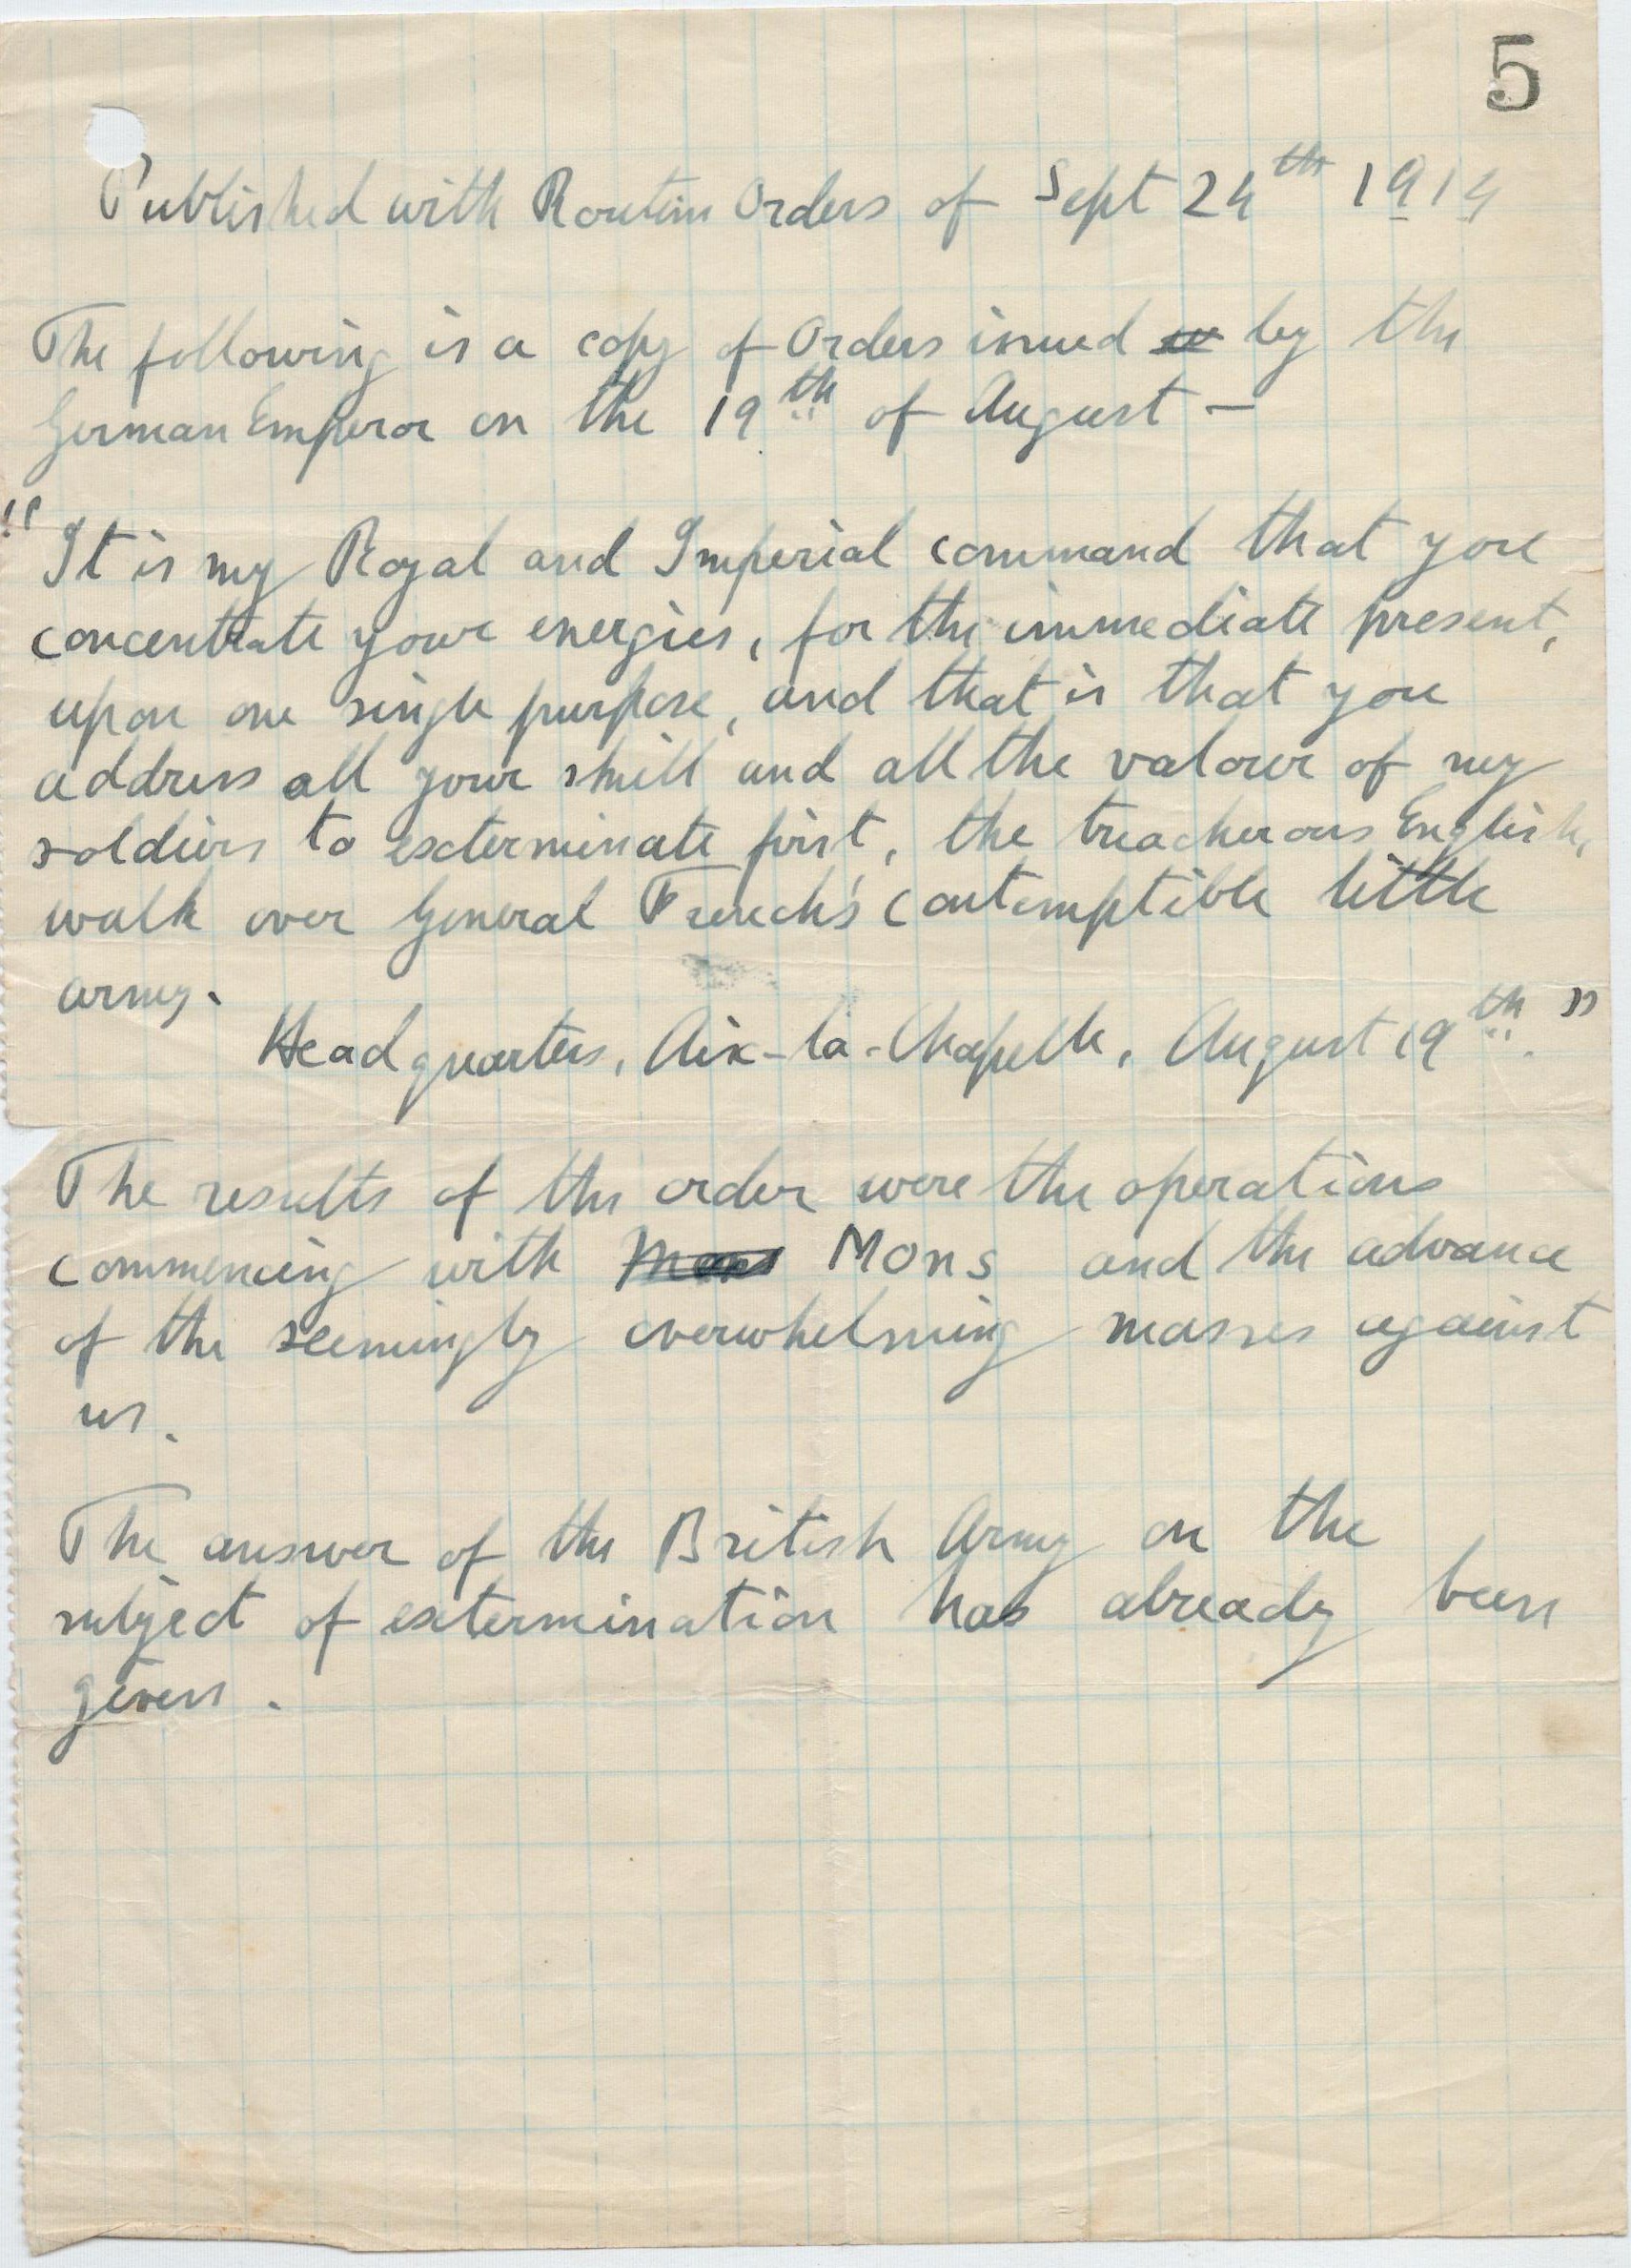 5
Published with Routine Orders of Sept 24th 1914
The following is a copy of Orders issued by the
German Emperor on the 19th of August -
"It is my Royal and Imperial command that you
concentrate your energies, for the immediate present,
upon one single purpose, and that is that you
address all your skill and all the valour of my
soldiers to exterminate first, the treacherous English,
walk over General French's contemptible little
army.
Headquarters, Aix-la-Chapelle, August 19th."
The results of the order were the operations
commencing with Mons Mons and the advance
of the seemingly overwhelming masses against
us.
The answer of the British Army on the
subject of extermination has already been
given.